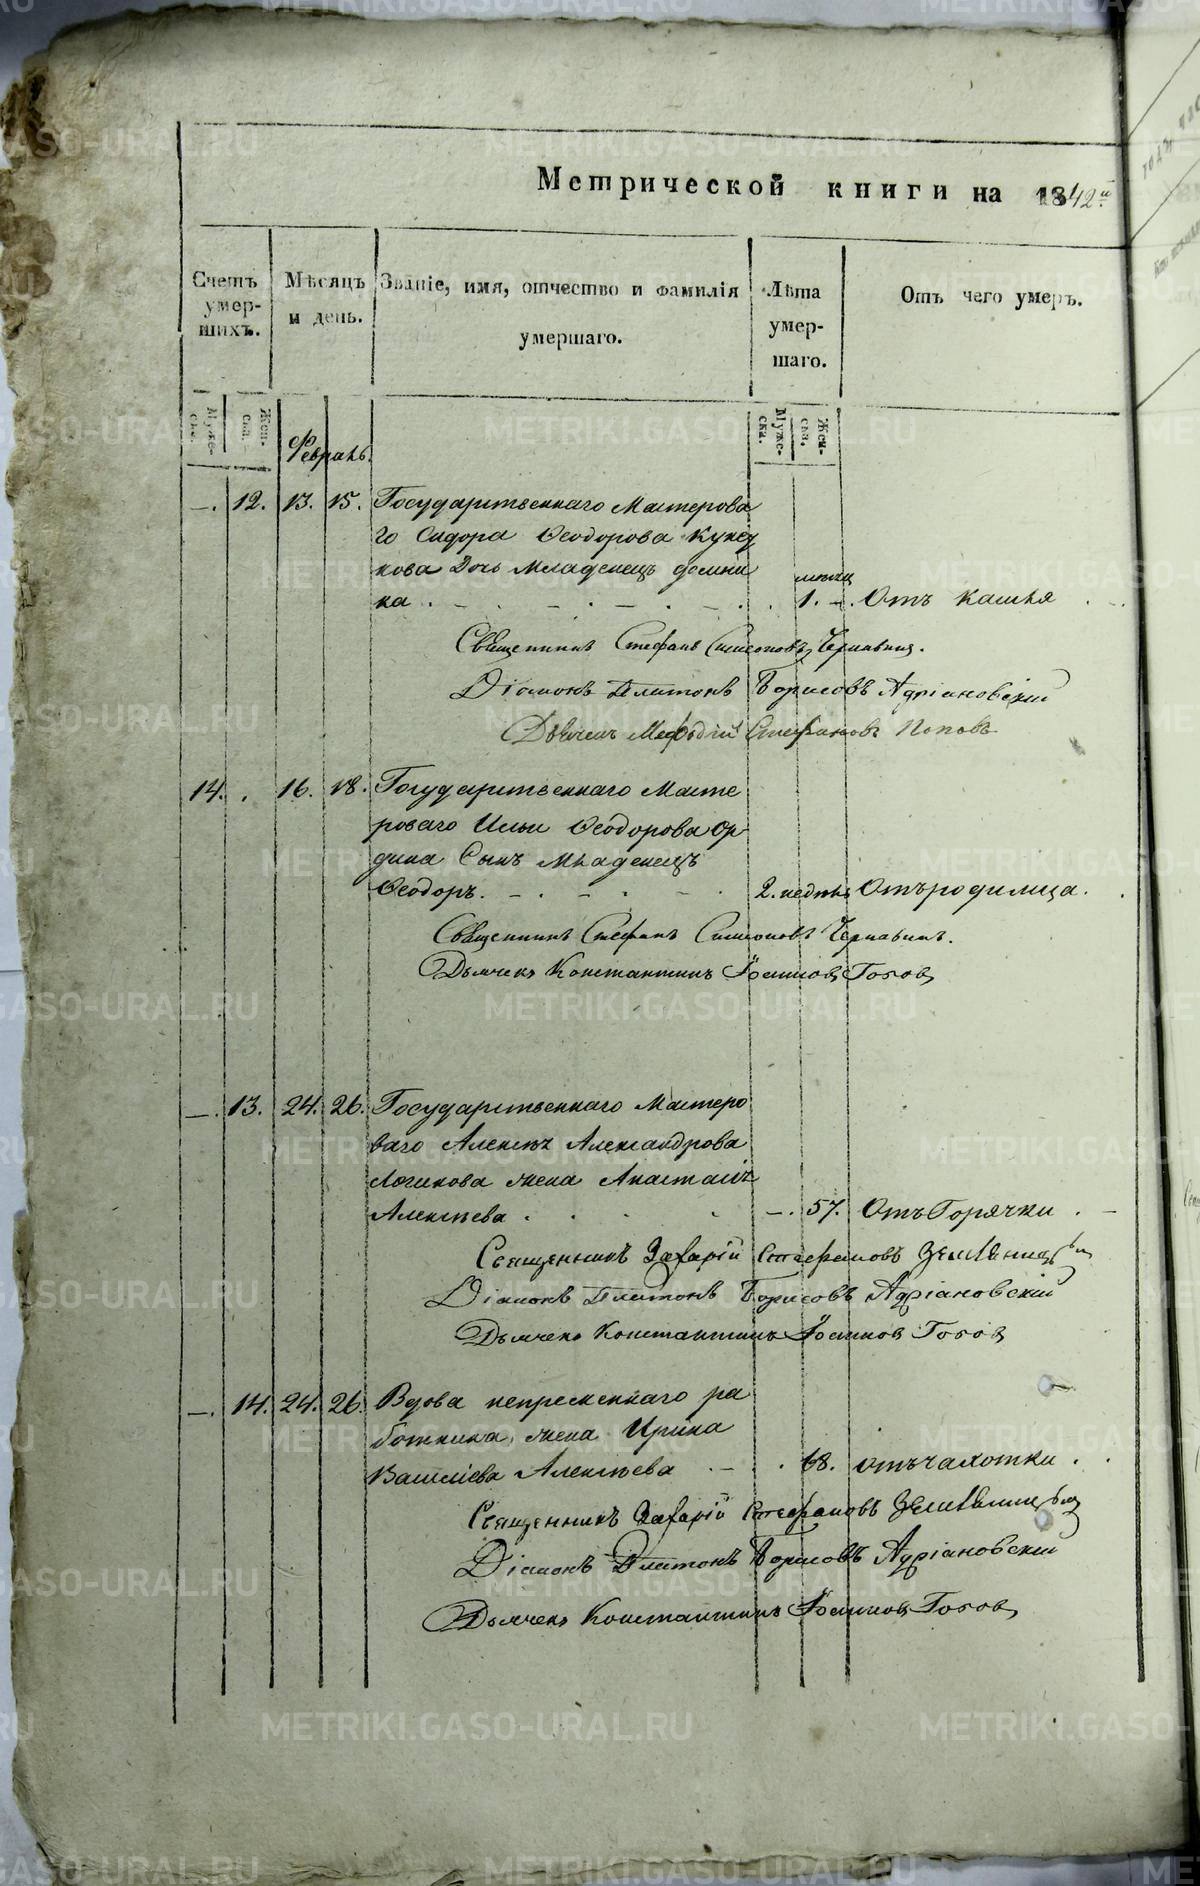 Метрической книги на 1842й
Счетъ умер-шихъ.
Мѣсяцъ и день.
Званіе, имя, отчество и фамилія умершаго.
Лѣта умер-шаго.
Отъ чего умеръ.
Муже-ска. Жен-ска.
Муже-ска. Жен-ска.
Февраль.
—. 12. 13. 15. Государственнаго Мастерова
го Сидора Ѳеодорова
кова Дочь младенецъ Домни
ка . — . — . — . 1. мѣсяц —. Отъ кашля
Священникъ Стефанъ Симеоновъ Чернавинъ.
Діаконъ Платонъ Борисовъ Адріановскій
Дьячекъ Меѳодій Стефановъ Поповъ
14. . 16. 18. Государственнаго Масте
роваго Ильи Ѳеодорова Ор
дина Сынъ Младенецъ
Ѳеодоръ. — . — . — . 2. недѣль Отъ родимца.
Священникъ Стефанъ Симеоновъ Чернавинъ.
Дьячекъ Константинъ Іоанновъ
—. 13. 24. 26. Государственнаго Мастеро
ваго Алексѣя Александрова
Логинова жена Анастасія
Алексѣева . . . . —. 57. Отъ Горячки . —
Священникъ Захарій Стефановъ
Діаконъ Платонъ Борисовъ Адріановскій
Дьячекъ Константинъ Іоанновъ
—. 14. 24. 26. Вдова непременнаго ра
ботника, жена Ирина
Василіева Алексѣева . — . 68. отъ чахотки . .
Священникъ Захарій Стефановъ
Діаконъ Платонъ Борисовъ Адріановскій
Дьячекъ Константинъ Іоанновъ
METRIKI.GASO-URAL.RU